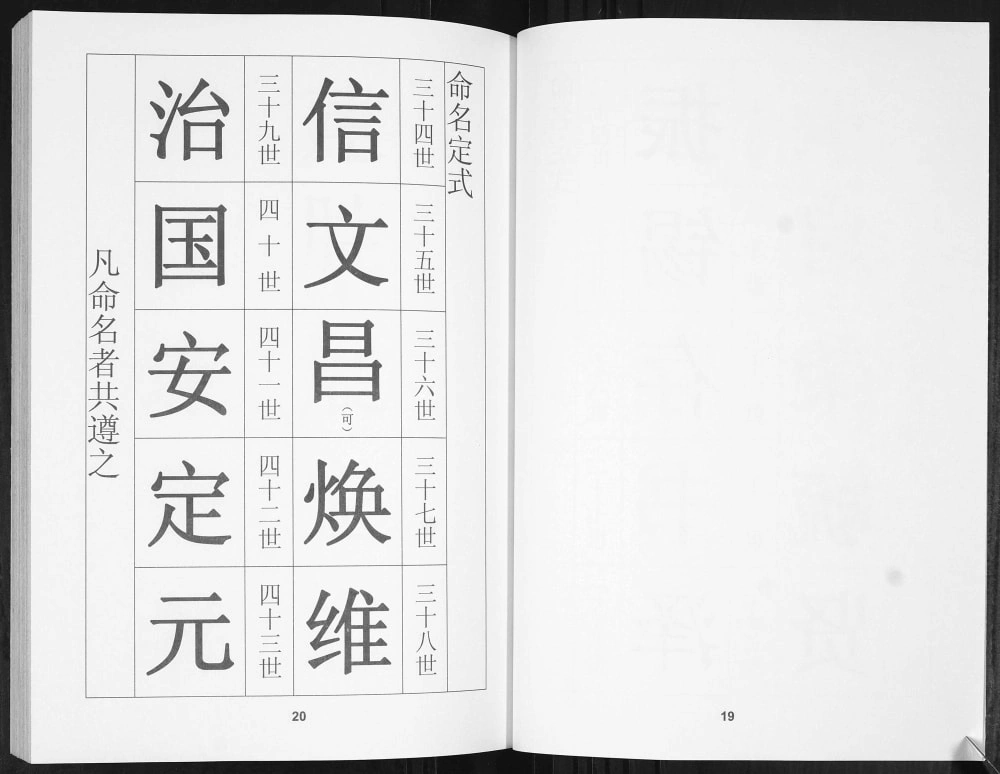 命名定式
三十四世
信
三十五世
文
三十六世
昌
（可）
三十七世
焕
三十八世
维
三十九世
治
四十世
国
四十一世
安
四十二世
定
四十三世
元
凡命名者共遵之
20
19